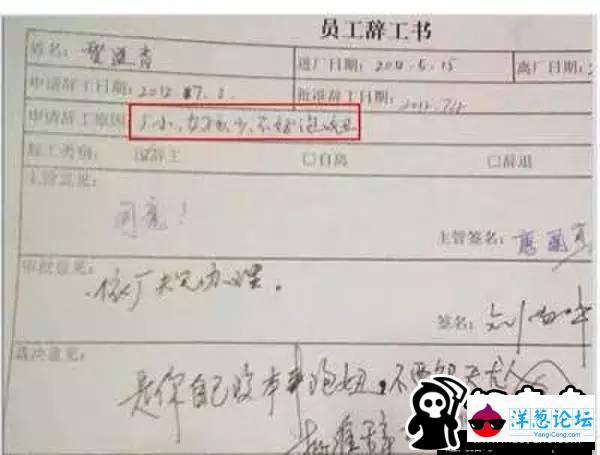 员工辞工书
姓名: 进厂日期: 2012.5.15 离厂日期:
申请辞工日期: 2012 7.2. 批准辞工日期: 2012.7.2
申请辞工原因: 厂小、女孩少、不好泡妞
辞工类别: ☑辞工 □自离 □辞退
主管意见:
同意!
主管签名:
审批意见:
依厂规办理。
签名: 刘
裁决意见:
是你自己没本事泡妞,不要怨天尤人
批准辞
洋葱论坛
Yang-Cong.com